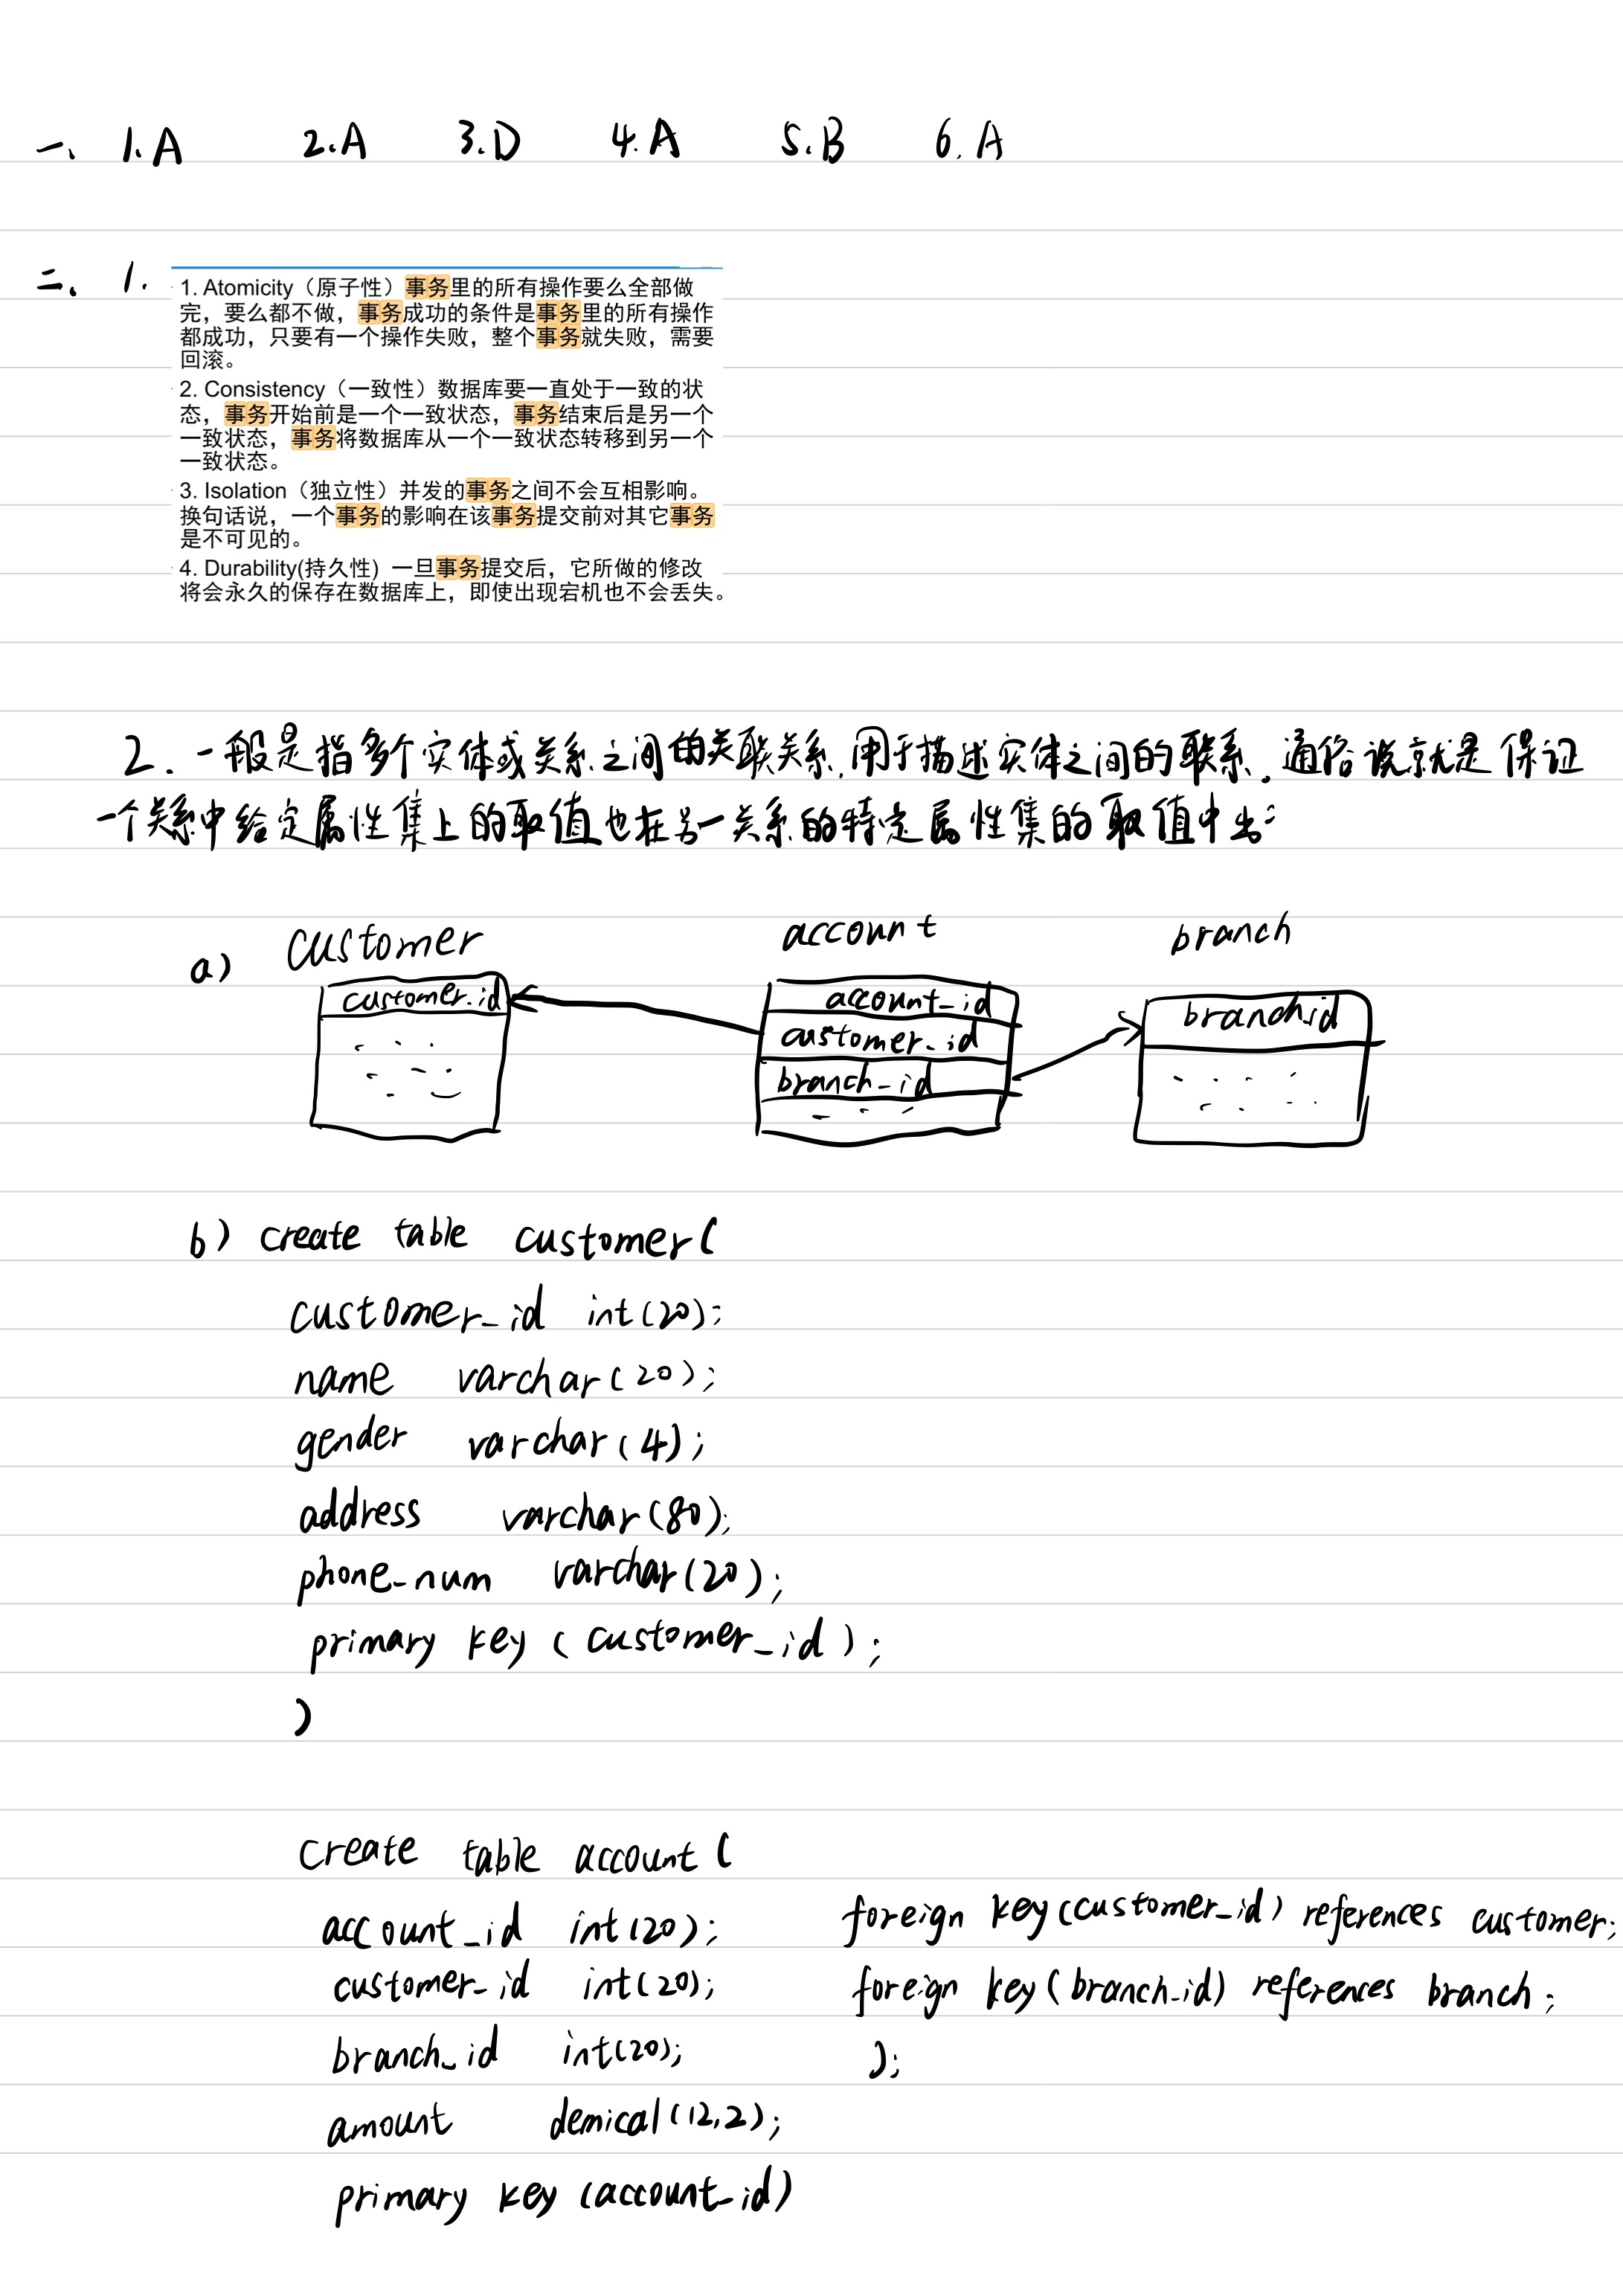 一、 1.A 2.A 3.D 4.A 5.B 6.A
二、 1.
1. Atomicity（原子性）事务里的所有操作要么全部做
完，要么都不做，事务成功的条件是事务里的所有操作
都成功，只要有一个操作失败，整个事务就失败，需要
回滚。
2. Consistency（一致性）数据库要一直处于一致的状
态，事务开始前是一个一致状态，事务结束后是另一个
一致状态，事务将数据库从一个一致状态转移到另一个
一致状态。
3. Isolation（独立性）并发的事务之间不会互相影响。
换句话说，一个事务的影响在该事务提交前对其它事务
是不可见的。
4. Durability(持久性) 一旦事务提交后，它所做的修改
将会永久的保存在数据库上，即使出现宕机也不会丢失。
2. 一般是指多个实体或关系之间的关联关系,用于描述实体之间的联系。通俗说就是保证
一个关系中给定属性集上的取值也在另一关系的特定属性集的取值中出
a) customer account branch
customer_id account_id branch_id
customer_id
branch_id
b) create table customer(
customer_id int(20);
name varchar(20);
gender varchar(4);
address varchar(80);
phone_num varchar(20);
primary key (customer_id);
)
create table account (
account_id int(20);
customer_id int(20);
branch_id int(20);
amount demical(12,2);
primary key (account_id)
foreign key(customer_id) references customer;
foreign key(branch_id) references branch;
);